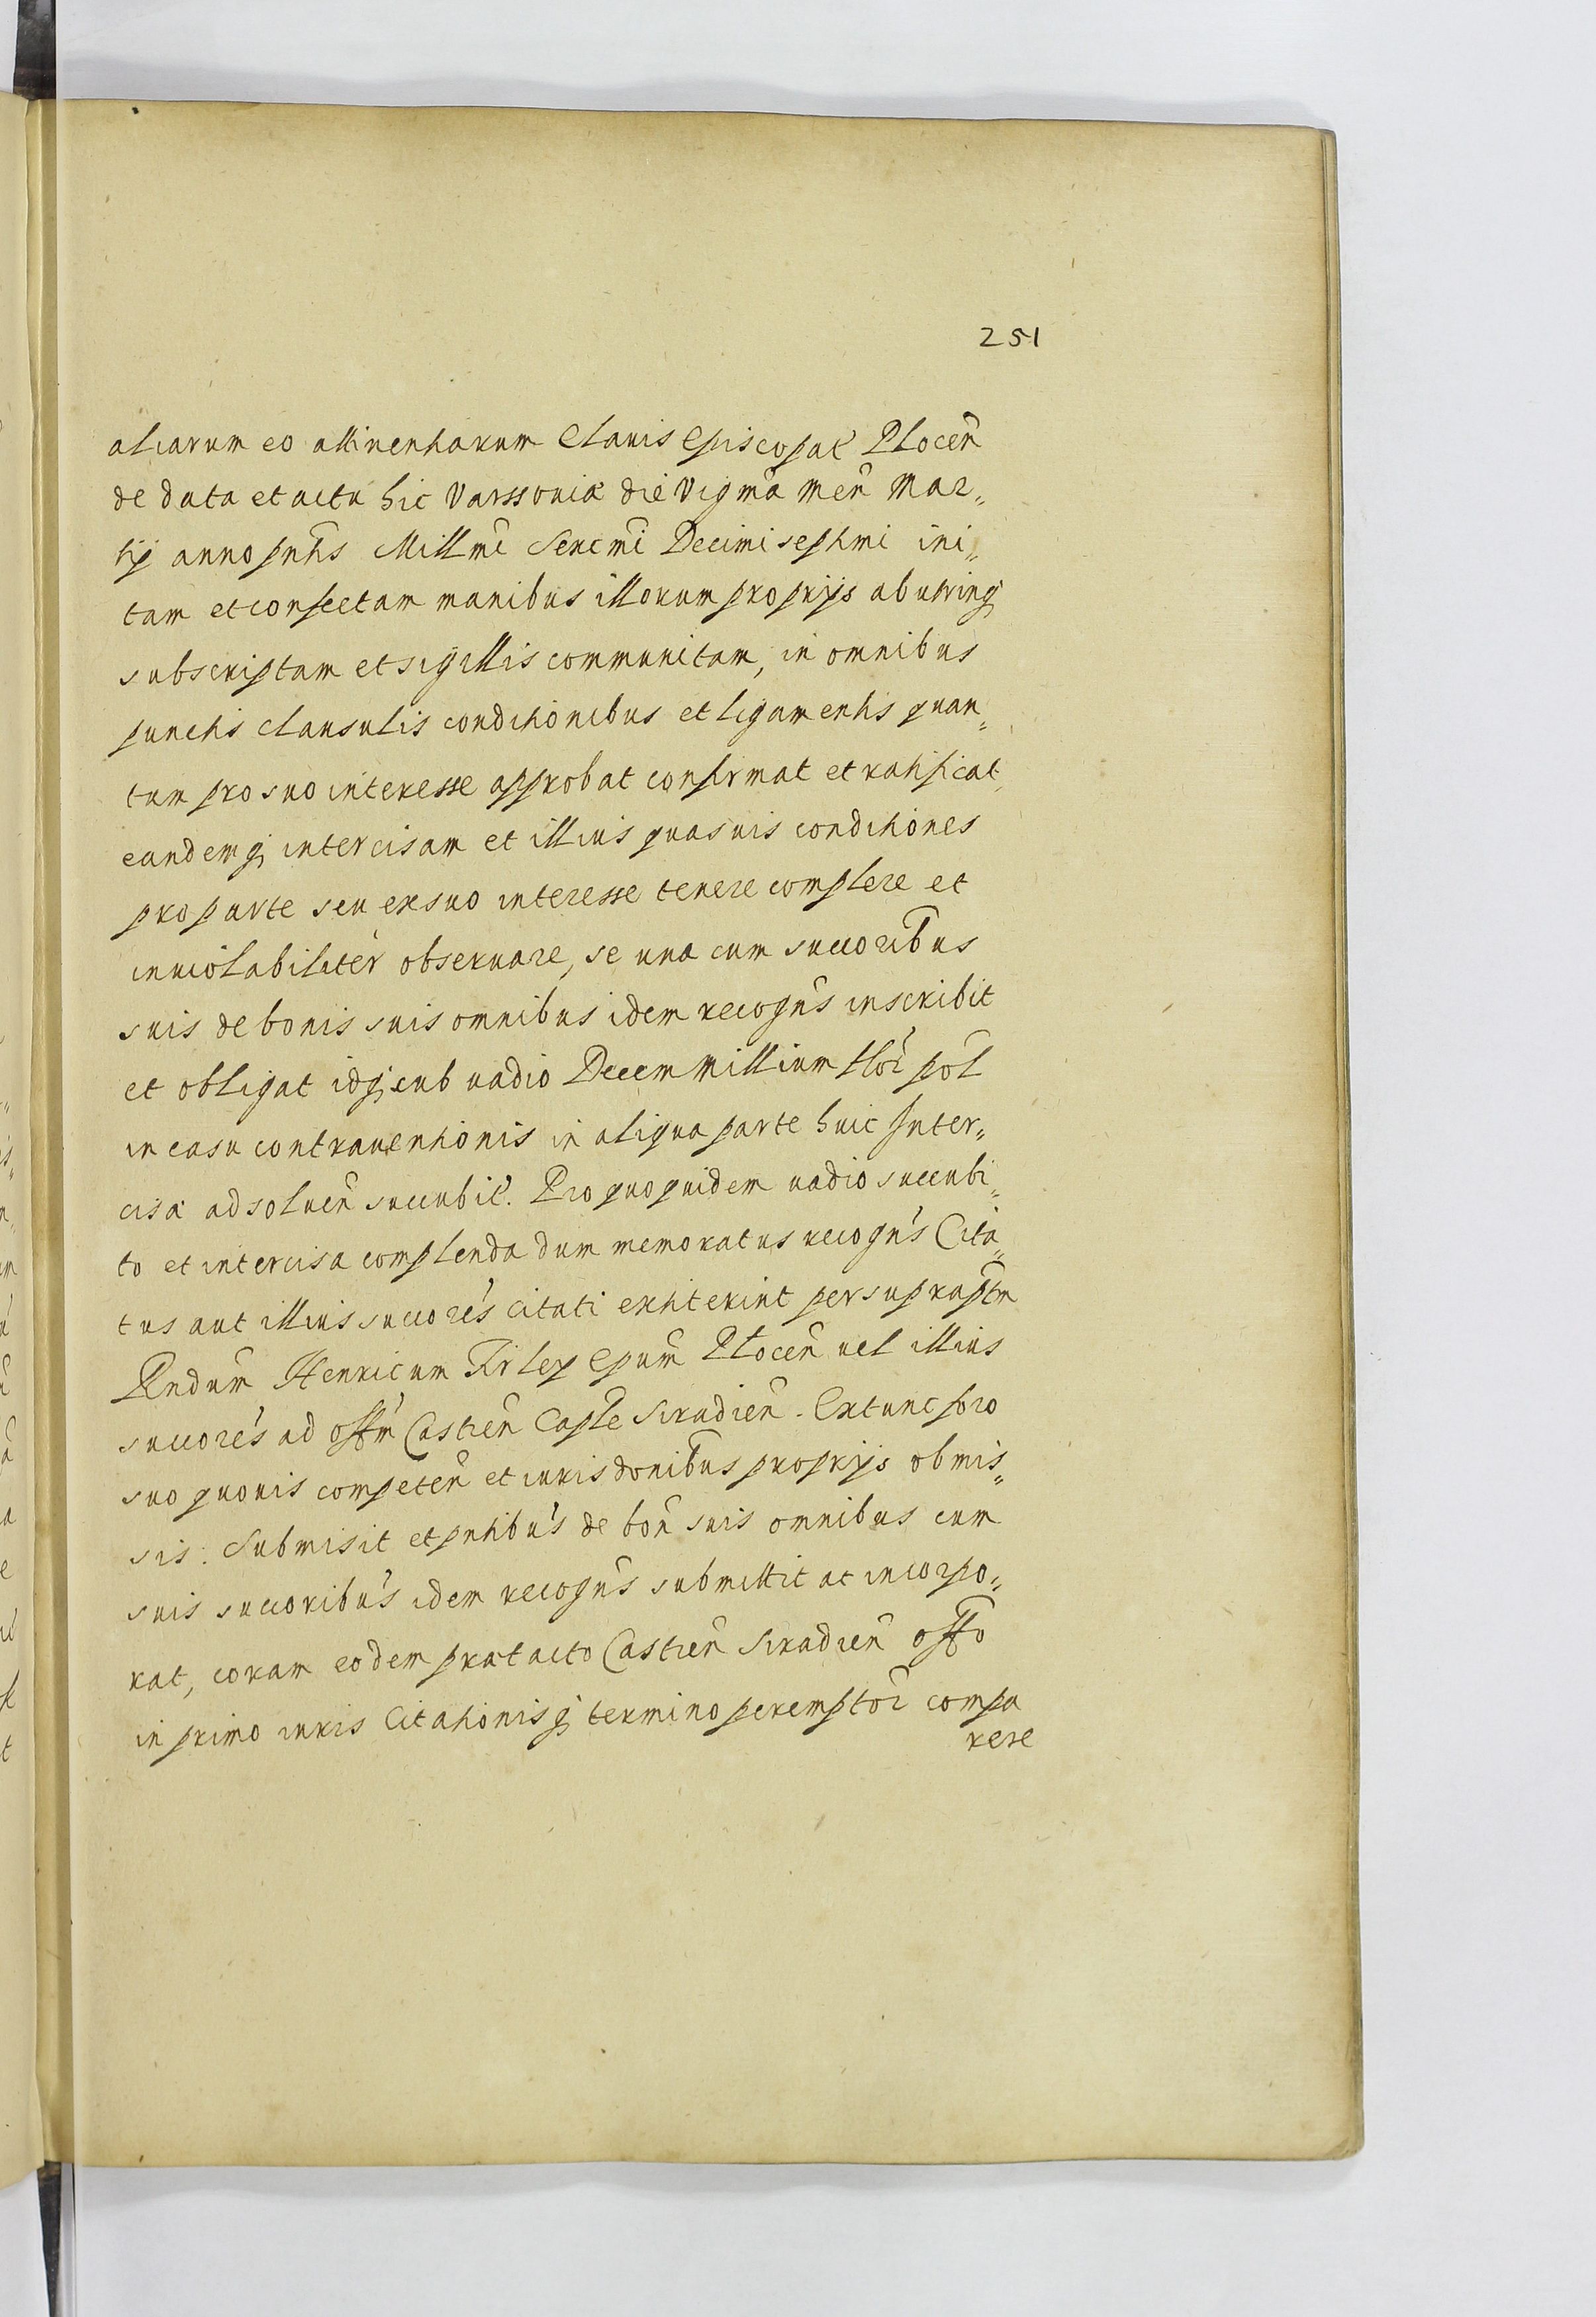 251
aliarum eo attinentiarum Clauis Episcopał Płocen̄
de data et actu hic Varssouiæ die Vigmã Men̄ Mar„
tij anno pnt̃is Millmĩ Sexcmĩ Decimi septimi ini„
tam et confectam manibus illorum proprijs ab utrinq́
subscriptam et sigillis communitam, in omnibus
punctis clausulis conditionibus et ligamentis quan„
tum pro suo interesse approbat confirmat et ratificat
eandemq́ intercisam et illius quasuis conditiones
pro parte seu ex suo interesse tenere complere et
inuiolabiliter obseruare, se una cum succorib̃us
suis de bonis suis omnibus idem recogñs inscribit
et obligat idq́ sub uadio Decem Millium flor̃ pol̃
in casu contrauentionis in aliqua parte huic Inter„
cisæ ad soluen̄ succubił. Pro quo quidem uadio succubi„
to et intercisa complenda dum memoratus recogñs Cita„
tus aut illius succorẽs citati extiterint per supraptm̃
Rndum̃ Henricum Firley Epum̃ Płocen̄ uel illius
succorẽs ad offm̃ Castren̄ Capłe Siradien̄. Extunc foro
suo quouis competen̄ et iurisdonib̃us proprijs obmis„
sis. Submisit et pntibũs de bon̄ suis omnibus cum
suis succoribũs idem recogñs submittit ac incorpo„
rat, coram eodem prætacto Castren̄ Siradien̄ offo̅
in primo iuris Citationisq́ termino peremptor̃ compa
rere